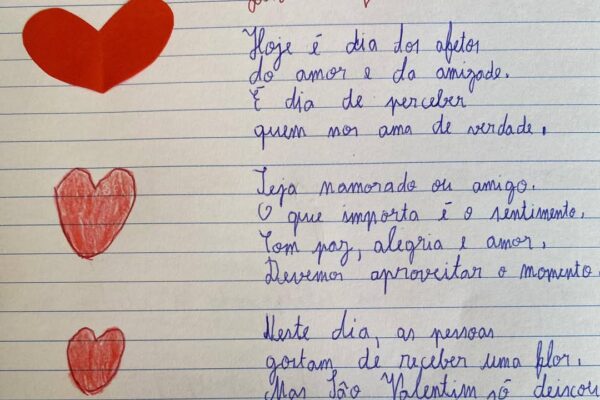 Hoje é dia dos afetos
do amor e da amizade.
É dia de perceber
quem nos ama de verdade.
Seja namorado ou amigo.
O que importa é o sentimento.
Com paz, alegria e amor.
Devemos aproveitar o momento.
Neste dia, as pessoas
gostam de receber uma flor.
Mas São Valentim só deixou